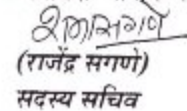 (राजेंद्र सगणे)
सदस्य सचिव